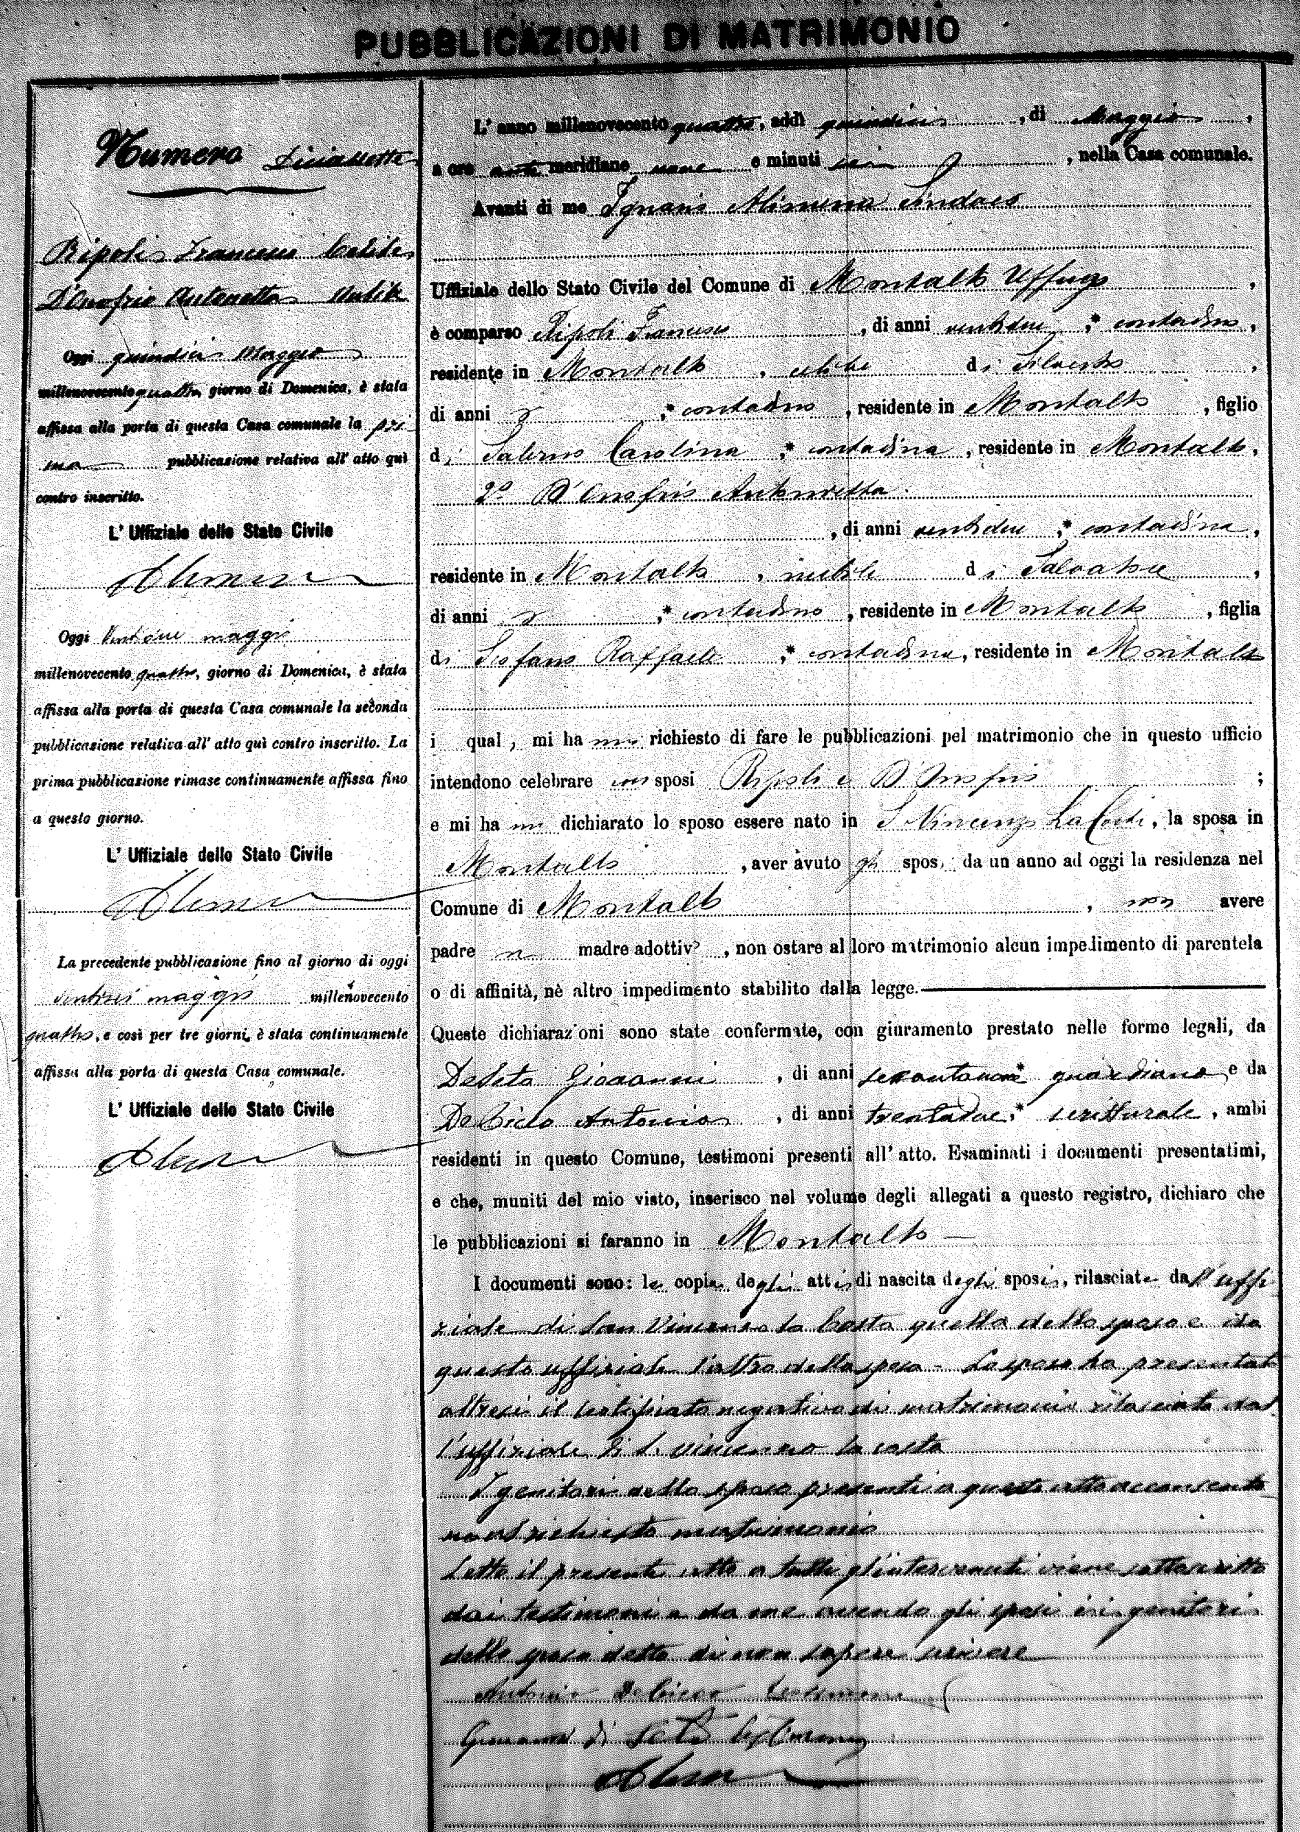 PUBBLICAZIONI DI MATRIMONIO
Numero Diciassette
Ripoli Francesco Celibe
D'Onofrio Antonetta Nubile
Oggi quindici Maggio
millenovecento quattro, giorno di Domenica, è stata
affissa alla porta di questa Casa comunale la pri-
ma pubblicazione relativa all' atto quì
contro inscritto.
L' Uffiziale dello Stato Civile
Alimena
Oggi Ventidue maggio
millenovecento quattro, giorno di Domenica, è stata
affissa alla porta di questa Casa comunale la seconda
pubblicazione relativa all' atto quì contro inscritto. La
prima pubblicazione rimase continuamente affissa fino
a questo giorno.
L' Uffiziale dello Stato Civile
Alimena
La precedente pubblicazione fino al giorno di oggi
maggio millenovecento
quattro, e così per tre giorni, è stata continuamente
affissa alla porta di questa Casa comunale.
L' Uffiziale dello Stato Civile
Alimena
L' anno millenovecento quattro, addì quindici, di Maggio,
a ore anti meridiane nove e minuti sei, nella Casa comunale.
Avanti di me Ignazio Alimena Sindaco
Uffiziale dello Stato Civile del Comune di Montalto Uffugo,
è comparso Ripoli Francesco, di anni ventidue, * contadino,
residente in Montalto, celibe di Silvestro,
di anni , * contadino, residente in Montalto, figlio
di Salerno Carolina, * contadina, residente in Montalto,
2º D'Onofrio Antonietta
, di anni ventidue, * contadina,
residente in Montalto, nubile di Salvatore,
di anni , * contadino, residente in Montalto, figlia
di Sisfano Raffaele, * contadina, residente in Montalto
i qual, mi ha nno richiesto di fare le pubblicazioni pel matrimonio che in questo ufficio
intendono celebrare sposi Ripoli e D'Onofrio ;
e mi ha nno dichiarato lo sposo essere nato in S Vincenzo La Costa, la sposa in
Montalto, aver avuto gli sposi da un anno ad oggi la residenza nel
Comune di Montalto, non avere
padre madre adottiv , non ostare al loro matrimonio alcun impedimento di parentela
o di affinità, nè altro impedimento stabilito dalla legge.
Queste dichiarazioni sono state confermate, con giuramento prestato nelle forme legali, da
DeSeta Giovanni, di anni sessantanove * guardiano e da
DeCicco Antonio, di anni trentadue, * scritturale, ambi
residenti in questo Comune, testimoni presenti all' atto. Esaminati i documenti presentatimi,
e che, muniti del mio visto, inserisco nel volume degli allegati a questo registro, dichiaro che
le pubblicazioni si faranno in Montalto
I documenti sono: le copie degli atti di nascita degli sposi, rilasciate dall'uffi
ziale di San Vincenzo la Costa quella dello sposo e da
questo uffiziale l'altra della sposa - Lo sposo ha presentato
altresì il certificato negativo di matrimonio rilasciato dal
l'uffiziale di S. Vincenzo la costa
I genitori dello sposo presenti a questo atto acconsento
no al richiesto matrimonio
Letto il presente atto a tutti gl'intervenuti viene sottoscritto
dai testimoni e da me avendo gli sposi ed i genitori
dello sposo detto di non sapere scrivere
Antonio Decicco testimone
Giovanni di Seta testimone
Alimena